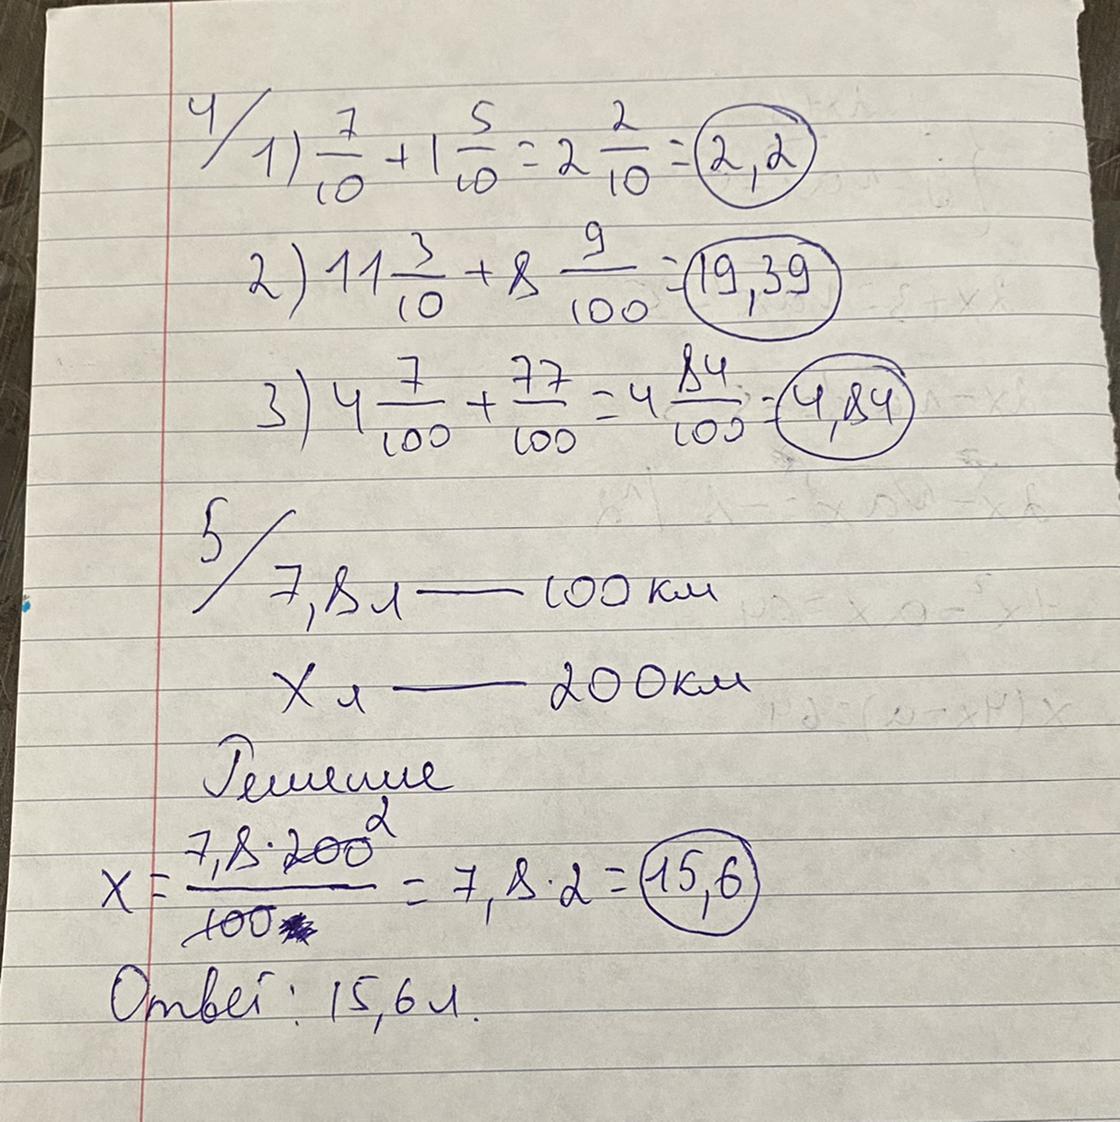 4/ 1) 7/10 + 1 5/10 = 2 2/10 = 2,2
2) 11 3/10 + 8 9/100 = 19,39
3) 4 7/100 + 77/100 = 4 84/100 = 4,84
5/ 7,8 л — 100 км
х л — 200 км
Решение
х = 7,8 · 200 2 / 100 = 7,8 · 2 = 15,6
Ответ: 15,6 л.